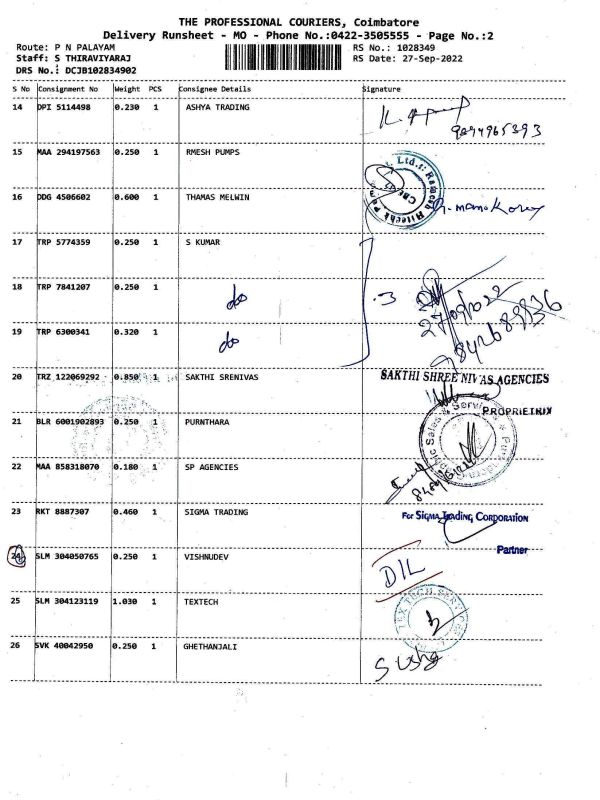 THE PROFESSIONAL COURIERS, Coimbatore
Delivery Runsheet - MO - Phone No.:0422-3505555 - Page No.:2
Route: P N PALAYAM RS No.: 1028349
Staff: S THIRAVIYARAJ RS Date: 27-Sep-2022
DRS No.: DCJB102834902
S No Consignment No Weight PCS Consignee Details Signature
14 DPI 5114498 0.230 1 ASHYA TRADING
9894965393
15 MAA 294197563 0.250 1 RMESH PUMPS
16 DDG 4506602 0.600 1 THAMAS MELWIN
17 TRP 5774359 0.250 1 S KUMAR
18 TRP 7841207 0.250 1 do
3
27/09/2022
19 TRP 6300341 0.320 1 do
20 TRZ 122069292 0.850 1 SAKTHI SRENIVAS SAKTHI SHREE NIVAS AGENCIES
PROPRIETRIX
21 BLR 6001902893 0.250 1 PURNTHARA
22 MAA 858318070 0.180 1 SP AGENCIES
23 RKT 8887307 0.460 1 SIGMA TRADING For SIGMA TRADING CORPORATION
Partner
24 SLM 304050765 0.250 1 VISHNUDEV D/L
25 SLM 304123119 1.030 1 TEXTECH TEX TECH SERVICES
26 SVK 40042950 0.250 1 GHETHANJALI